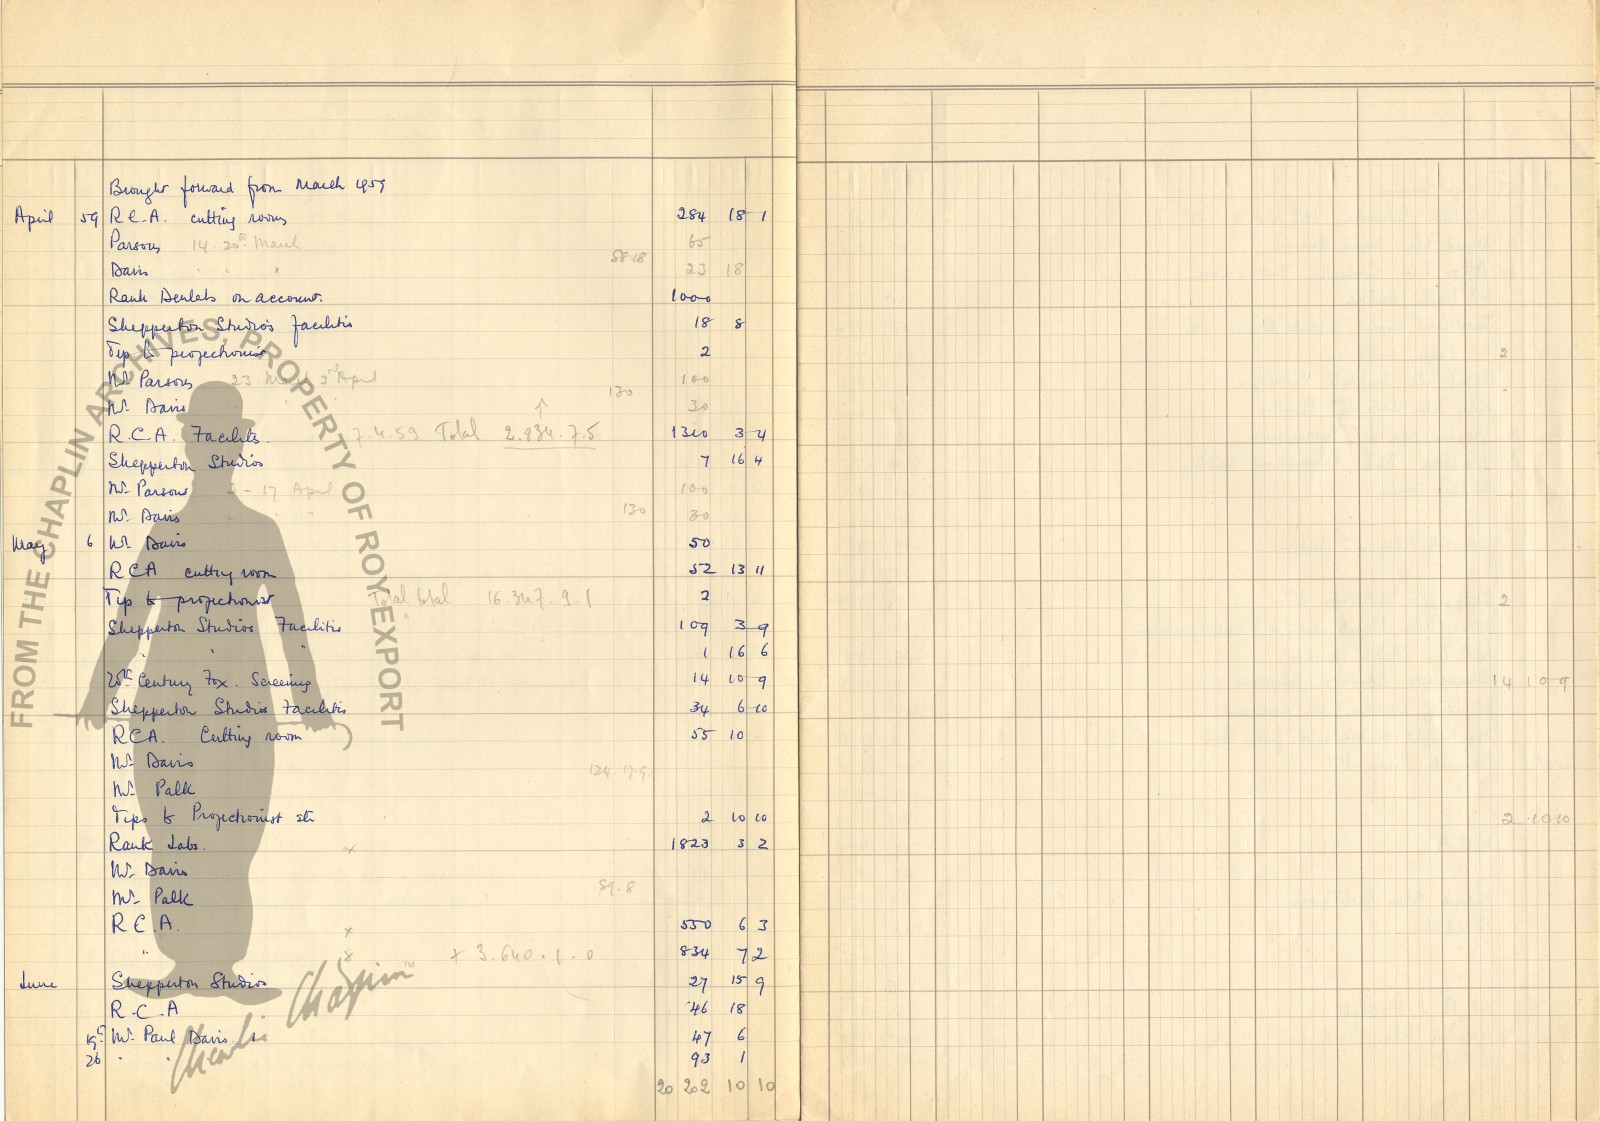 Brought forward from March 1959
April 59 R.C.A. cutting rooms 284 18 1
Parsons 14. 20th March 65
Davis " " " 58.18 23 18
Rank Denlabs on account. 1000
Shepperton Studios facilities 18 8
Tip to projectionist 2 2
Mr Parsons 23 March 3rd April 100
Mr Davis 130 30
R.C.A. Facilities. 7.4.59 Total 2.834.7.5 1310 3 4
Shepperton Studios 7 16 4
Mr Parsons - 17 April 100
Mr Davis 130 30
May 6 Mr Davis 50
RCA cutting room 52 13 11
Tip to projectionist Total total 16.347.9.1 2 2
Shepperton Studios Facilities 109 3 9
" " " 1 16 6
20th Century Fox. Screening 14 10 9 14 10 9
Shepperton Studios Facilities 34 6 10
RCA. Cutting room 55 10
Mr Davis 124.17.9.
Mr Palk
Tips to Projectionist etc 2 10 10 2 10 10
Rank Labs. x 1823 3 2
Mr Davis
Mr Palk 59.8
R C.A. x 550 6 3
" 8 + 3.640.1.0 834 7 2
June Shepperton Studios 27 15 9
R.C.A 46 18
19th Mr Paul Davis. 47 6
26 " " 93 1
20 202 10 10
FROM THE CHAPLIN ARCHIVES, PROPERTY OF ROY EXPORT
Charlie Chaplin™